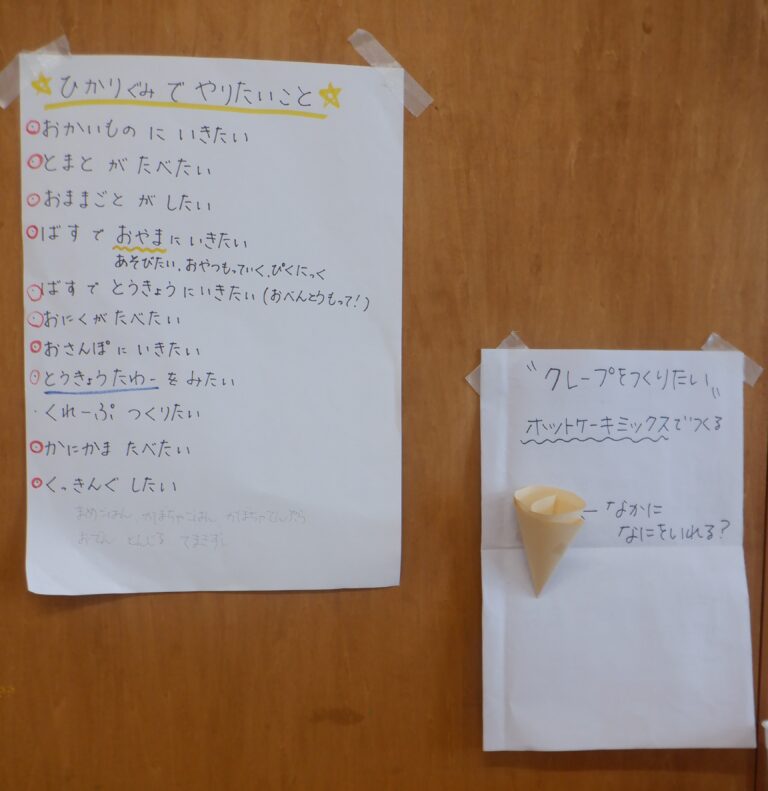 ひかりぐみで やりたいこと
おかいもの に いきたい
とまと が たべたい
おままごと が したい
ばす で おやまに いきたい
あそびたい、おやつもっていく、ぴくにっく
ばす で とうきょうにいきたい (おべんとうもって!)
おにくが たべたい
おさんぽに いきたい
とうきょうたわー を みたい
・くれーぷ つくりたい
かにかま たべたい
くっきんぐ したい
まめごはん、かぼちゃごはん かぼちゃてんぷら
おでん とんじる てまきずし
〝クレープをつくりたい〟
ホットケーキミックスでつくる
なかに
なにをいれる?